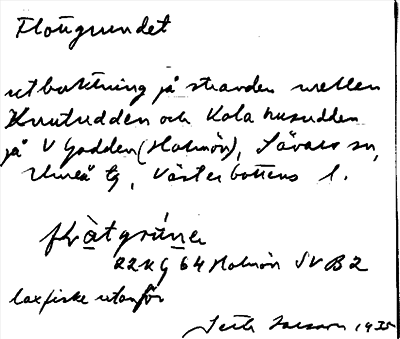 Flottgrundet
utbuktning på stranden mellan
Knutudden och Kolahusudden
på V Gadden (Holmön), Sävars sn,
Umeå tg, Västerbottens l.
22K 64 Holmön SV B2
laxfiske utanför
1935